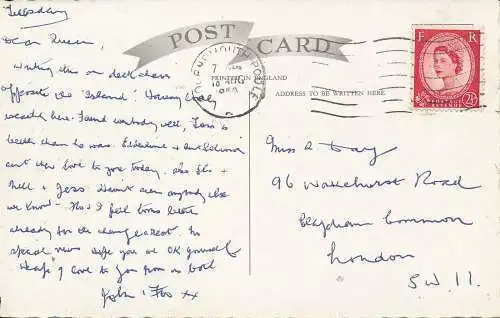 Tuesday
Dear Queen,
Writing this on deck chairs
opposite the "Island". Having lovely
weather here. Found everybody well,
better than he was. Ethelwine &
sent their love to you today. also Flo &
Nell & Jess. Haven't seen anybody else
we know. Flo & I feel tons better
already for the change & rest. No
special news. Hope you are OK yourself
Heaps of love to you from us both
John & Flo xx
POST CARD
PRINTED IN ENGLAND
ADDRESS TO BE WRITTEN HERE
BOURNEMOUTH-POOLE
7
10 AUG
F R
POSTAGE REVENUE
2½D
Miss A Day
96 Wakehurst Road
Clapham Common
London
S.W.11.